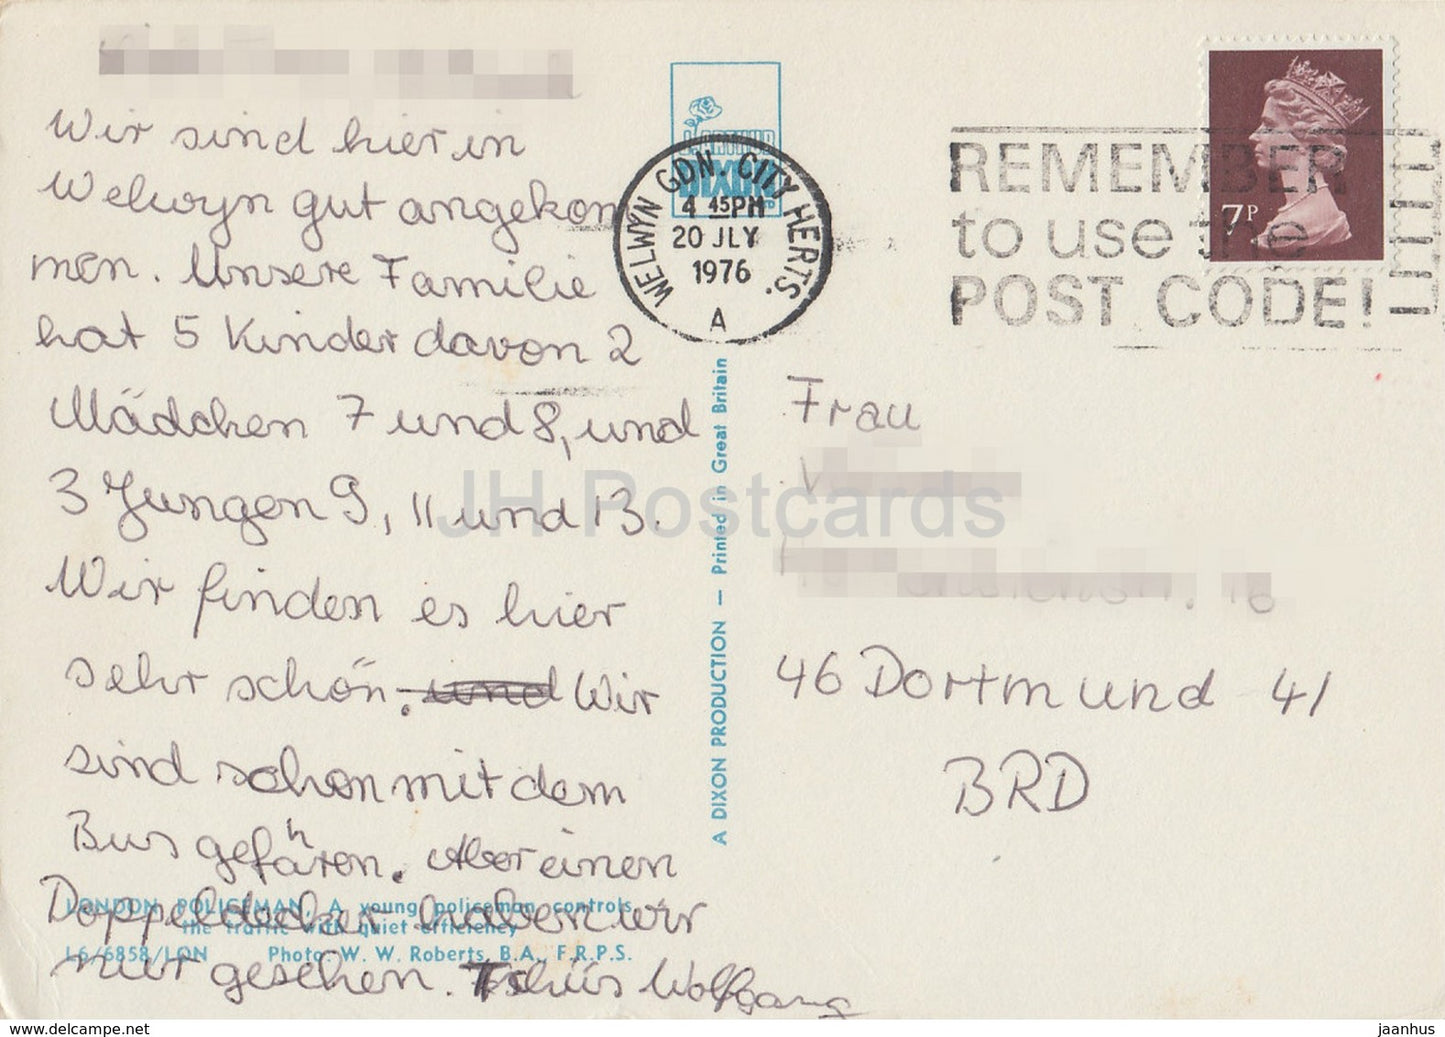 Wir sind hier in
Welwyn gut angekom
men. Unsere Familie
hat 5 Kinder davon 2
Mädchen 7 und 8, und
3 Jungen 9, 11 und 13.
Wir finden es hier
sehr schön. und Wir
sind schon mit dem
Bus gefähren. Aber einen
Doppeldecker haben wir
nur gesehen. Tschüs Wolfgang
LONDON POLICEMAN, A young policeman controls
the traffic with quiet efficiency
L6/6858/LON Photo: W. W. Roberts, B.A., F.R.P.S.
J. ARTHUR
DIXON
WELWYN GDN. CITY HERTS.
4 45PM
20 JLY
1976
A
A DIXON PRODUCTION — Printed in Great Britain
REMEMBER
to use the
POST CODE!
7P
Frau
46 Dortmund 41
BRD
JH Postcards
www.delcampe.net
jaanhus